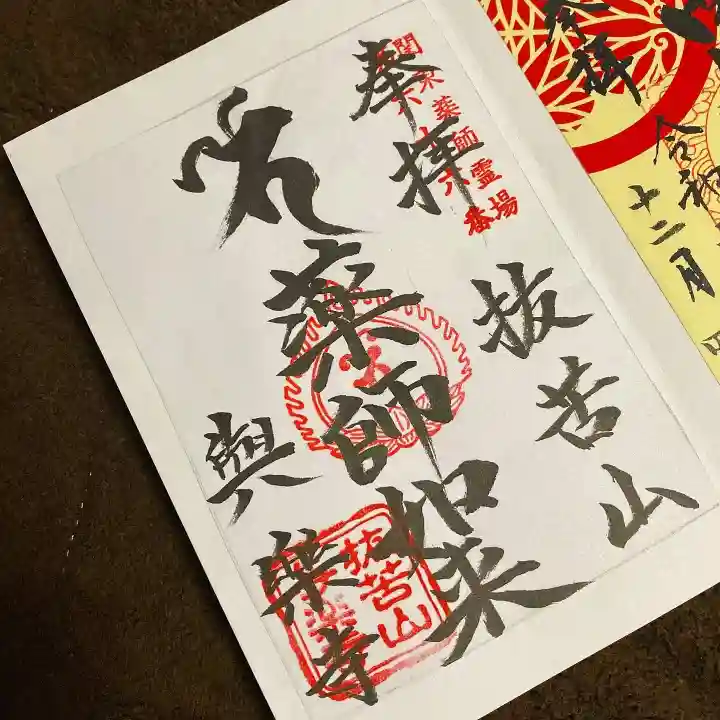 奉拝
抜苦山
薬師如来
與楽寺
関東薬師霊場
番
抜苦山
拝
令和
十二月